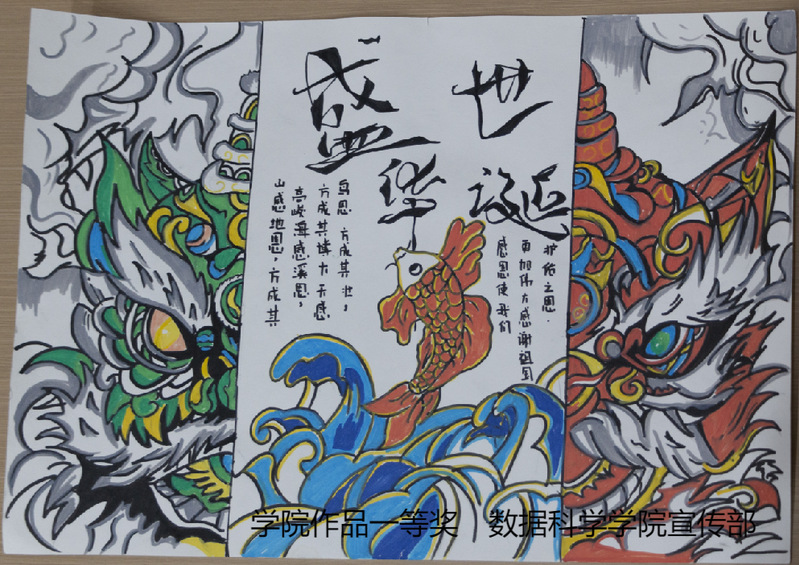 盛世
华诞
山感地恩,方成其
高峻海感溪恩,
方成其博大天感
鸟恩,方成其壮,
感恩使我们
更加伟大感谢祖国
之恩.
学院作品一等奖 数据科学学院宣传部